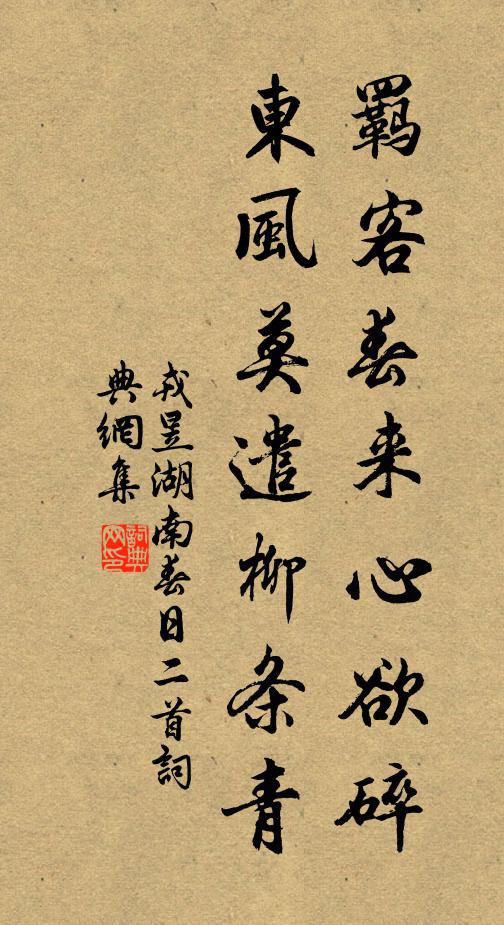 羈客春来心欲碎
東風莫遣柳条青
戎昱湖南春日二首詞
典網集
詞典
网印